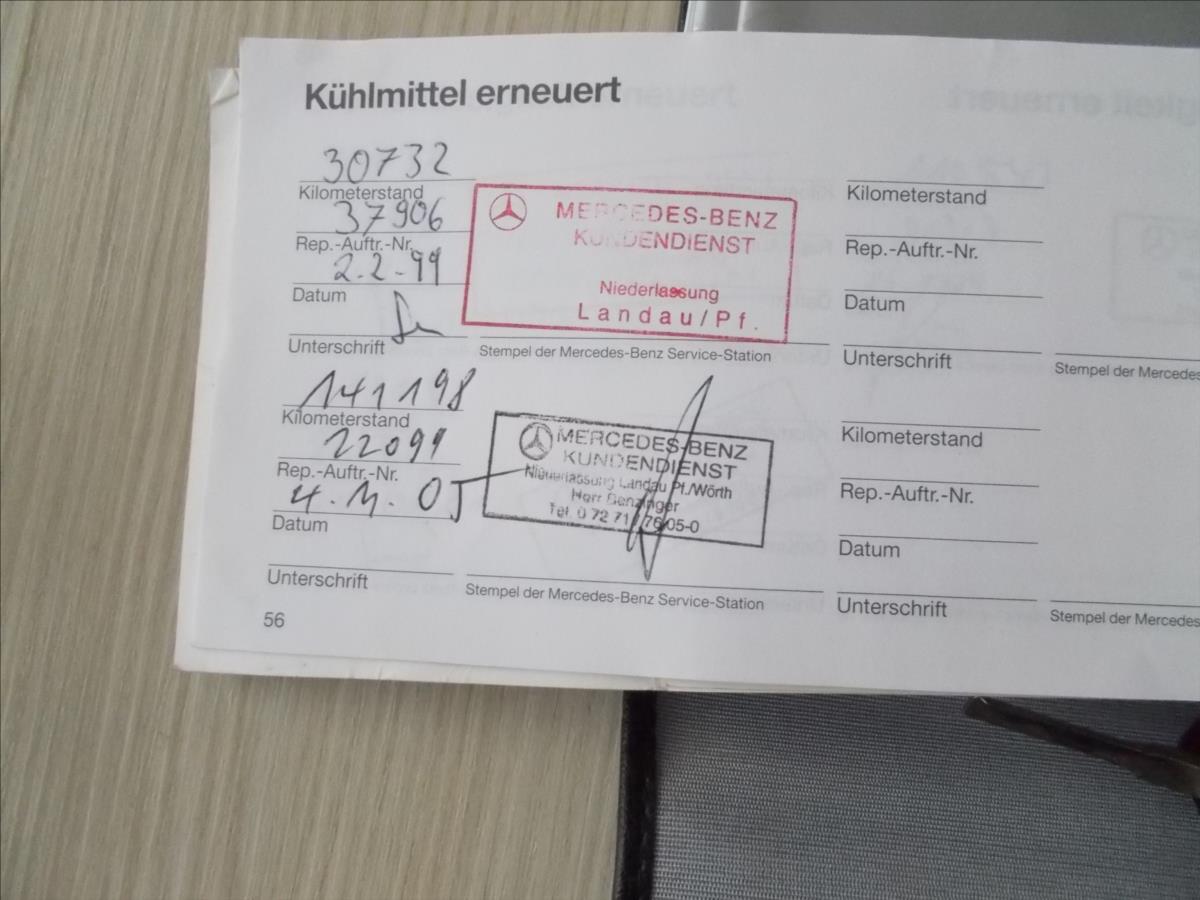 Kühlmittel erneuert
30732
Kilometerstand
37906
Rep.-Auftr.-Nr.
2.2-99
Datum
Unterschrift
MERCEDES-BENZ
KUNDENDIENST
Niederlassung
Landau/Pf.
Stempel der Mercedes-Benz Service-Station
141198
Kilometerstand
22099
Rep.-Auftr.-Nr.
4.11.05
Datum
Unterschrift
MERCEDES-BENZ
KUNDENDIENST
Niederlassung Landau Pf./Wörth
Herr Benzinger
Tel. 0 72 71 / 76 05-0
Stempel der Mercedes-Benz Service-Station
56
Kilometerstand
Rep.-Auftr.-Nr.
Datum
Unterschrift
Stempel der Mercedes
Kilometerstand
Rep.-Auftr.-Nr.
Datum
Unterschrift
Stempel der Mercedes